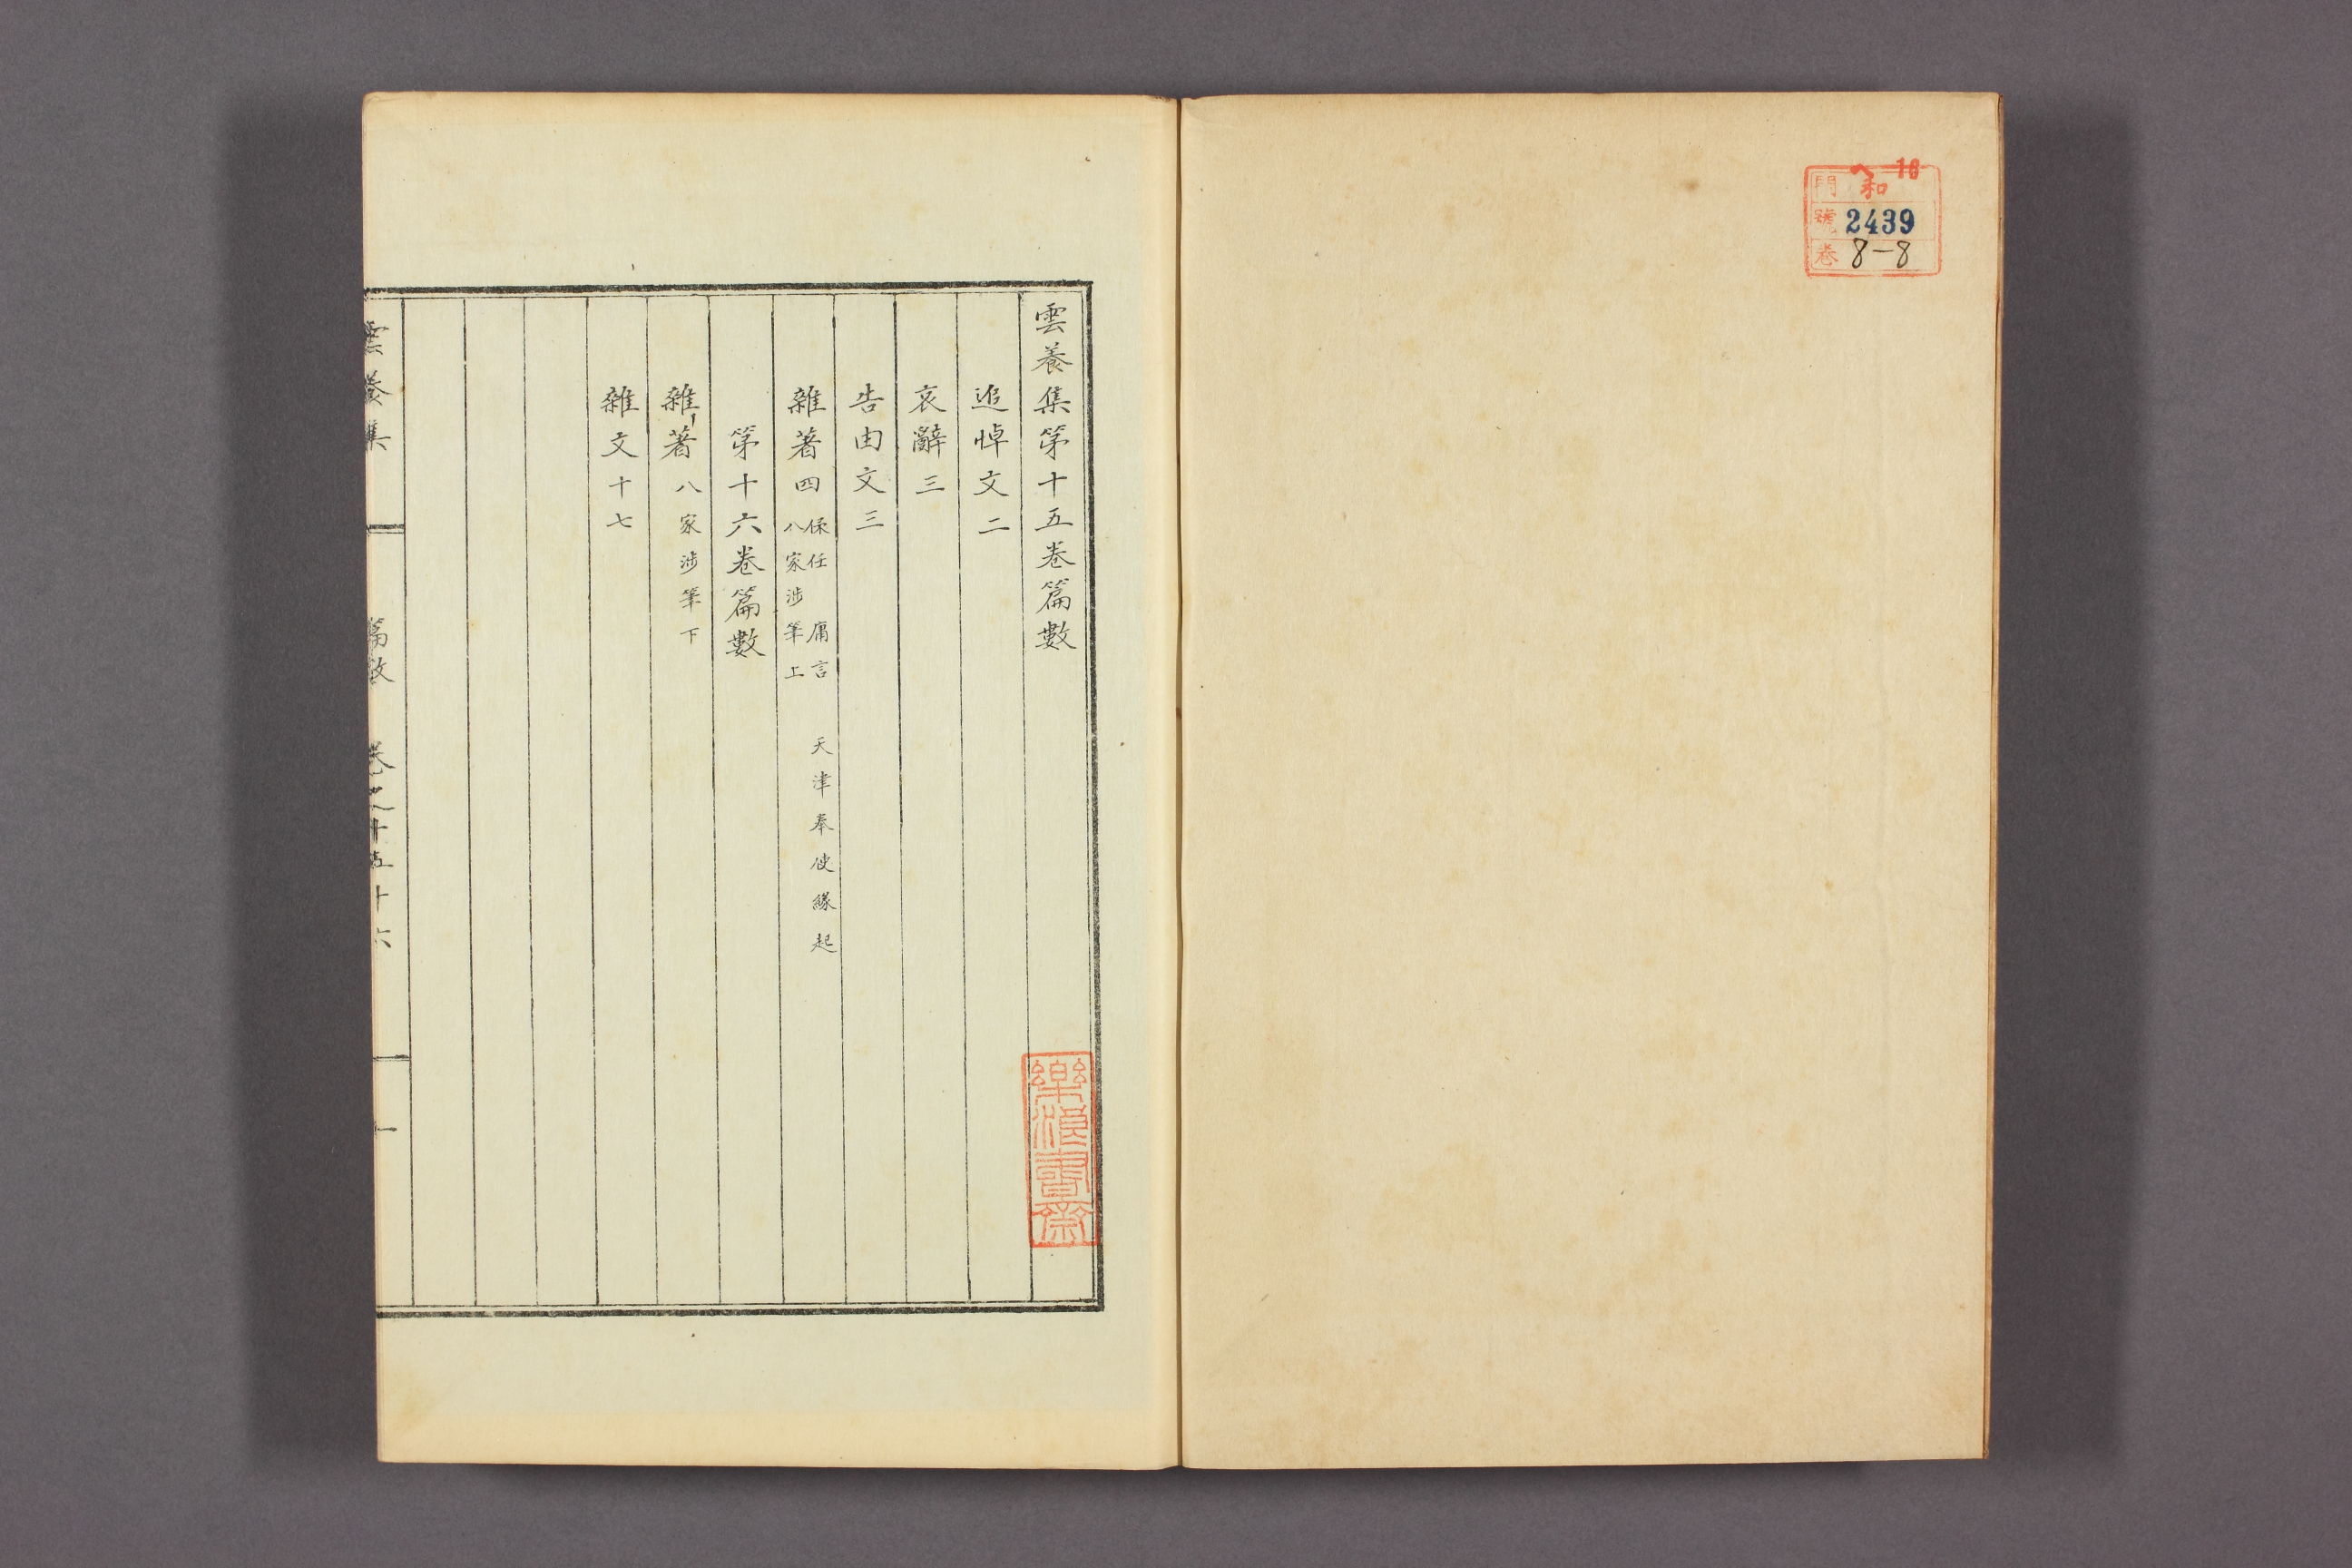 和 16
門
號 2439
卷 8-8
雲養集第十五卷篇數
追悼文二
哀辭三
告由文三
雜著四 保任 庸言 天津奉使緣起
八家涉筆上
第十六卷篇數
雜著 八家涉筆下
雜文十七
雲養集 篇數 卷之十五十六 一
樂浪書齋